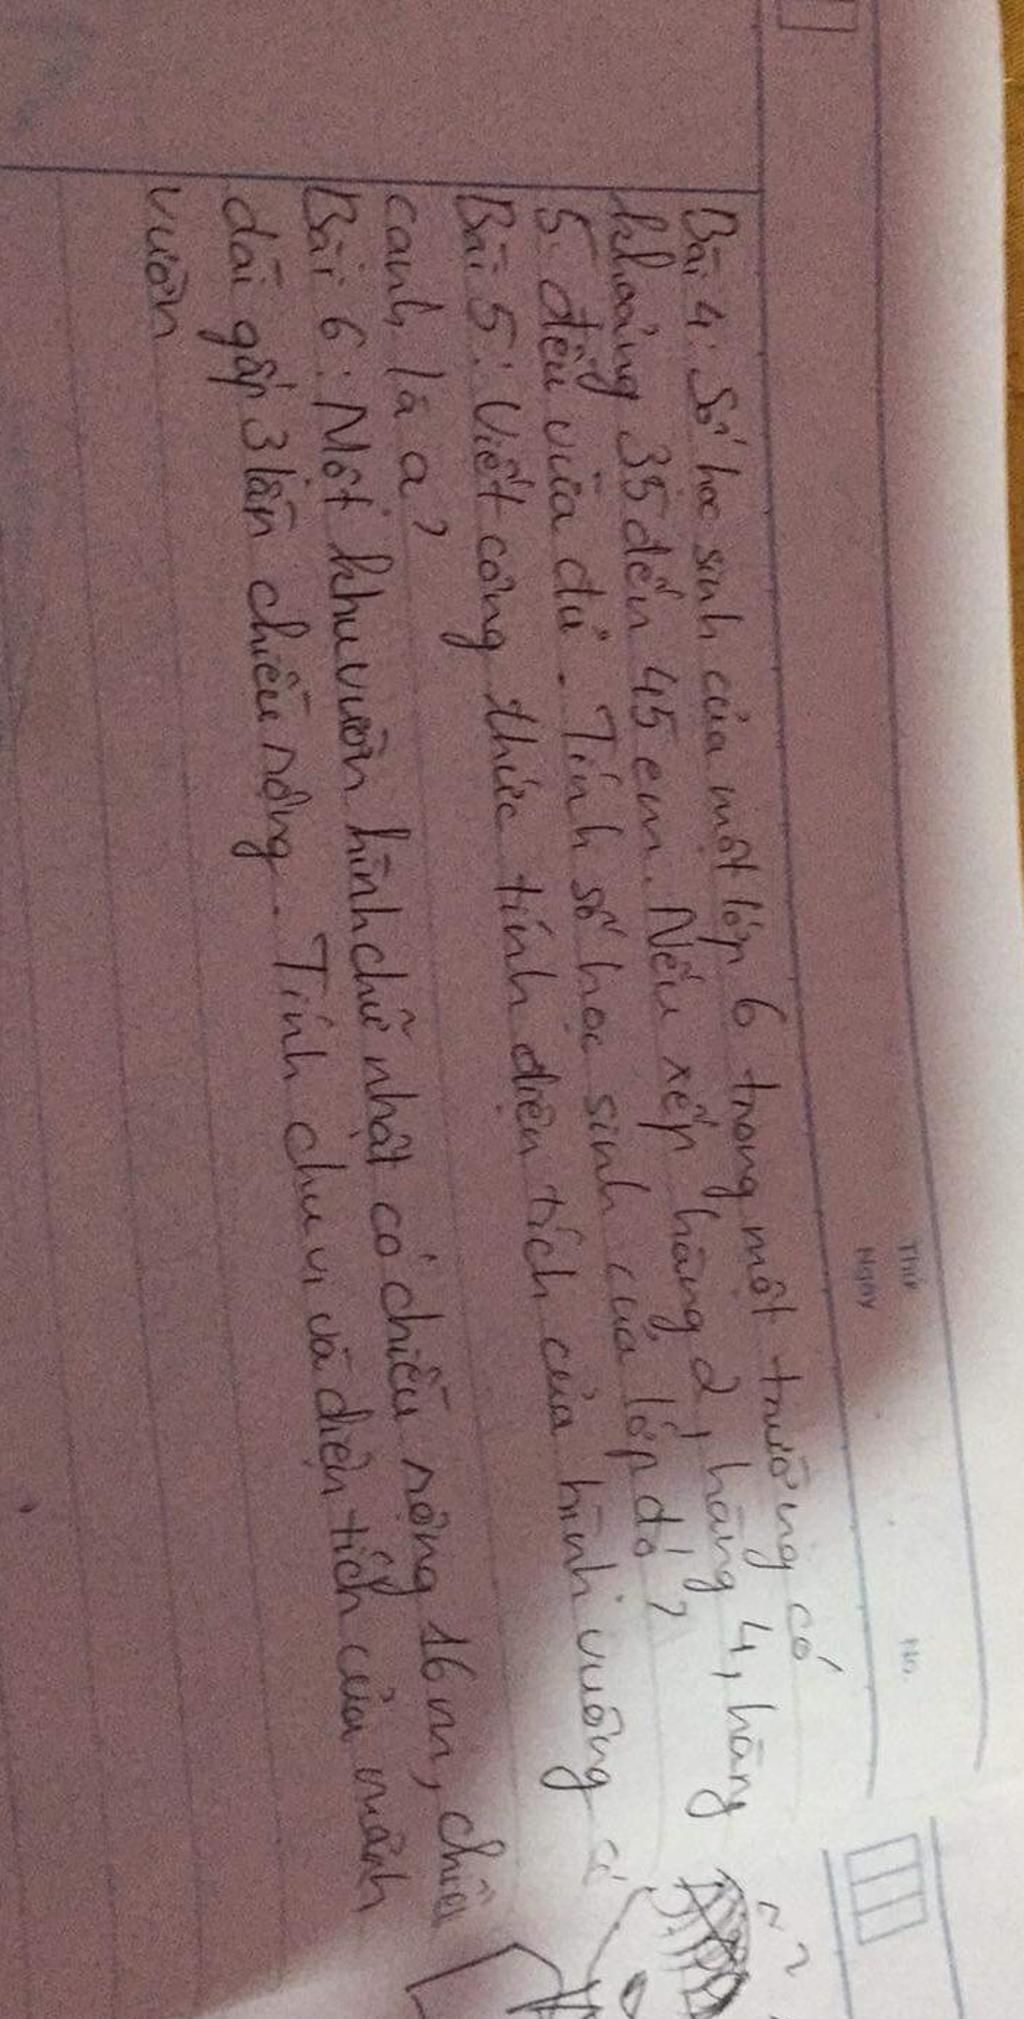 Thứ
Ngày
No.
Bài 4: Số học sinh của một lớp 6 trong một trường có
khoảng 35 đến 45 em. Nếu xếp hàng 2, hàng 4, hàng
5 đều vừa đủ. Tính số học sinh của lớp đó?
Bài 5: Viết công thức tính diện tích của hình vuông có
cạnh là a?
Bài 6: Một khu vườn hình chữ nhật có chiều rộng 16 m, chiều
dài gấp 3 lần chiều rộng. Tính chu vi và diện tích của mảnh
vườn